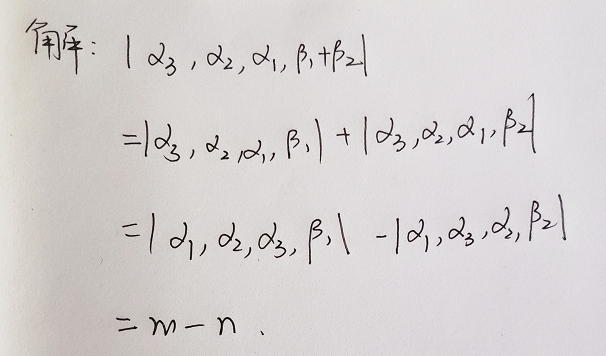 解: |α₃, α₂, α₁, β₁+β₂|
=|α₃, α₂, α₁, β₁| + |α₃, α₂, α₁, β₂|
=|α₁, α₂, α₃, β₁| -|α₁, α₃, α₂, β₂|
= m - n .